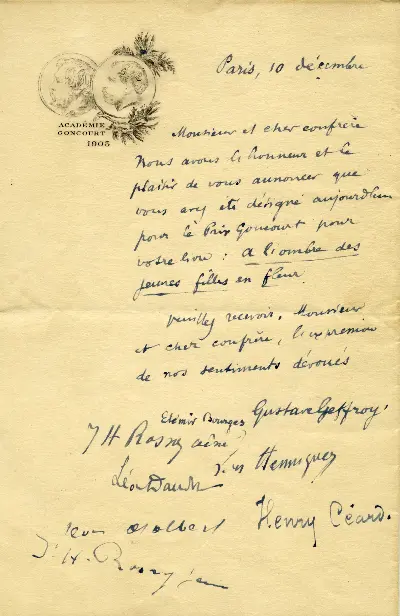 ACADÉMIE
GONCOURT
1903
Paris, 10 décembre
Monsieur et cher confrère
Nous avons l'honneur et le
plaisir de vous annoncer que
vous avez été désigné aujourd'hui
pour le Prix Goncourt pour
votre livre : A l'ombre des
jeunes filles en fleur
Veuillez recevoir, Monsieur
et cher confrère, l'expression
de nos sentiments dévoués
Elémir Bourges Gustave Geffroy.
J H Rosny aîné
Léon Hennique
Léon Daudet
Jean Ajalbert Henry Céard.
J. H. Rosny